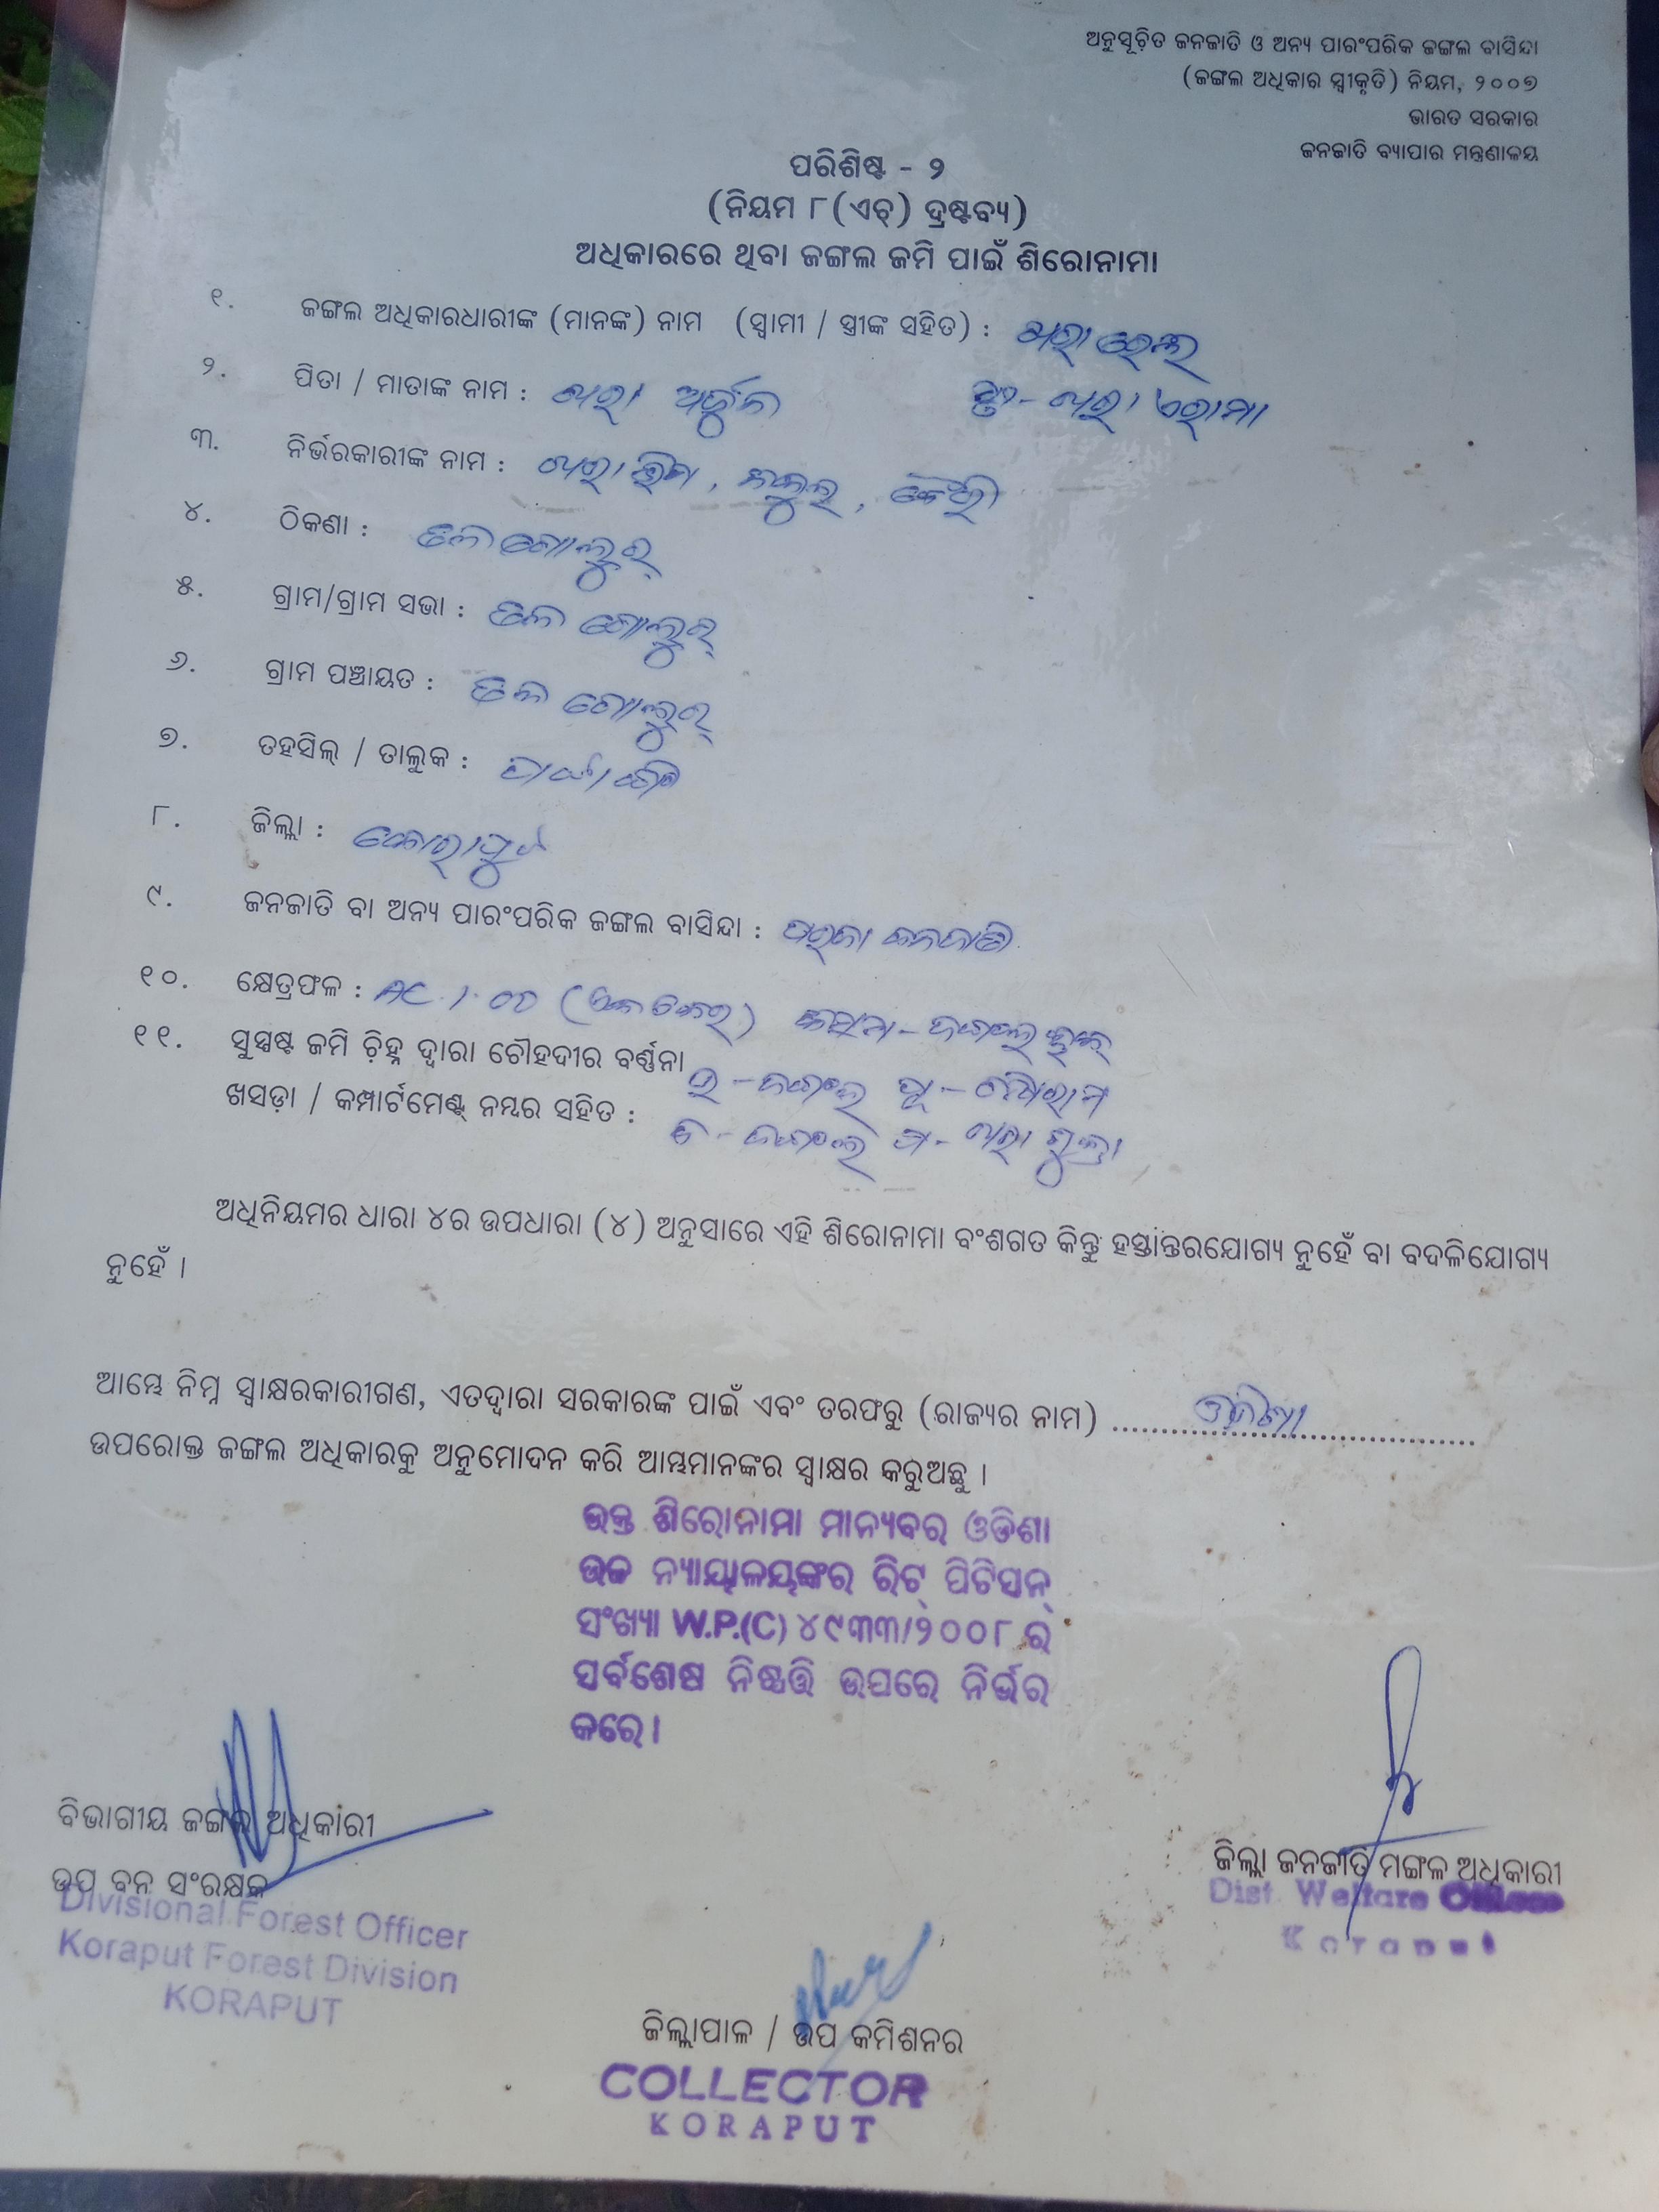 ଅନୁସୂଚିତ ଜନଜାତି ଓ ଅନ୍ୟ ପାରଂପରିକ ଜଙ୍ଗଲ ବାସିନ୍ଦା
(ଜଙ୍ଗଲ ଅଧିକାର ସ୍ଵୀକୃତି) ନିୟମ, ୨୦୦୭
ଭାରତ ସରକାର
ଜନଜାତି ବ୍ୟାପାର ମନ୍ତ୍ରଣାଳୟ
ପରିଶିଷ୍ଟ - ୨
(ନିୟମ ୮(ଏଚ୍) ଦ୍ରଷ୍ଟବ୍ୟ)
ଅଧିକାରରେ ଥିବା ଜଙ୍ଗଲ ଜମି ପାଇଁ ଶିରୋନାମା
୧. ଜଙ୍ଗଲ ଅଧିକାରଧାରୀଙ୍କ (ମାନଙ୍କ) ନାମ (ସ୍ଵାମୀ / ସ୍ତ୍ରୀଙ୍କ ସହିତ) :
୨. ପିତା / ମାତାଙ୍କ ନାମ : ଖରା ଅର୍ଜୁନ
୩. ନିର୍ଭରକାରୀଙ୍କ ନାମ : ଖରା ଭିମ, ନକୁଲ,
୪. ଠିକଣା : ତଳ ଗୋଲୁର୍
୫. ଗ୍ରାମ/ଗ୍ରାମ ସଭା : ତଳ ଗୋଲୁର୍
୬. ଗ୍ରାମ ପଞ୍ଚାୟତ : ତଳ ଗୋଲୁର୍
୭. ତହସିଲ୍ / ତାଲୁକ :
୮. ଜିଲ୍ଲା : କୋରାପୁଟ
୯. ଜନଜାତି ବା ଅନ୍ୟ ପାରଂପରିକ ଜଙ୍ଗଲ ବାସିନ୍ଦା : ପରଜା ଜନଜାତି
୧୦. କ୍ଷେତ୍ରଫଳ : AC 1.00 (ଏକ ଏକର)
୧୧. ସୁସ୍ପଷ୍ଟ ଜମି ଚିହ୍ନ ଦ୍ଵାରା ଚୌହଦୀର ବର୍ଣ୍ଣନା
ଖସଡ଼ା / କମ୍ପାର୍ଟମେଣ୍ଟ୍ ନମ୍ବର ସହିତ :
ଅଧିନିୟମର ଧାରା ୪ର ଉପଧାରା (୪) ଅନୁସାରେ ଏହି ଶିରୋନାମା ବଂଶଗତ କିନ୍ତୁ ହସ୍ତାନ୍ତରଯୋଗ୍ୟ ନୁହେଁ ବା ବଦଳିଯୋଗ୍ୟ
ନୁହେଁ ।
ଆମ୍ଭେ ନିମ୍ନ ସ୍ଵାକ୍ଷରକାରୀଗଣ, ଏତଦ୍ଵାରା ସରକାରଙ୍କ ପାଇଁ ଏବଂ ତରଫରୁ (ରାଜ୍ୟର ନାମ) ..... ଓଡିଶା .....
ଉପରୋକ୍ତ ଜଙ୍ଗଲ ଅଧିକାରକୁ ଅନୁମୋଦନ କରି ଆମ୍ଭମାନଙ୍କର ସ୍ଵାକ୍ଷର କରୁଅଛୁ ।
ଉକ୍ତ ଶିରୋନାମା ମାନ୍ୟବର ଓଡିଶା
ଉଚ୍ଚ ନ୍ୟାୟାଳୟଙ୍କର ରିଟ୍ ପିଟିସନ୍
ସଂଖ୍ୟା W.P.(C) ୪୯୩୩/୨୦୦୮ ର
ସର୍ବଶେଷ ନିଷ୍ପତ୍ତି ଉପରେ ନିର୍ଭର
କରେ ।
ବିଭାଗୀୟ ଜଙ୍ଗଲ ଅଧିକାରୀ
ଉପ ବନ ସଂରକ୍ଷକ
Divisional Forest Officer
Koraput Forest Division
KORAPUT
ଜିଲ୍ଲା ଜନଜାତି ମଙ୍ଗଳ ଅଧିକାରୀ
Dist. Welfare Officer
Koraput
ଜିଲ୍ଲାପାଳ / ଉପ କମିଶନର
COLLECTOR
KORAPUT